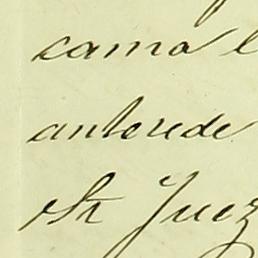 cama l
anterede
Sr Juez